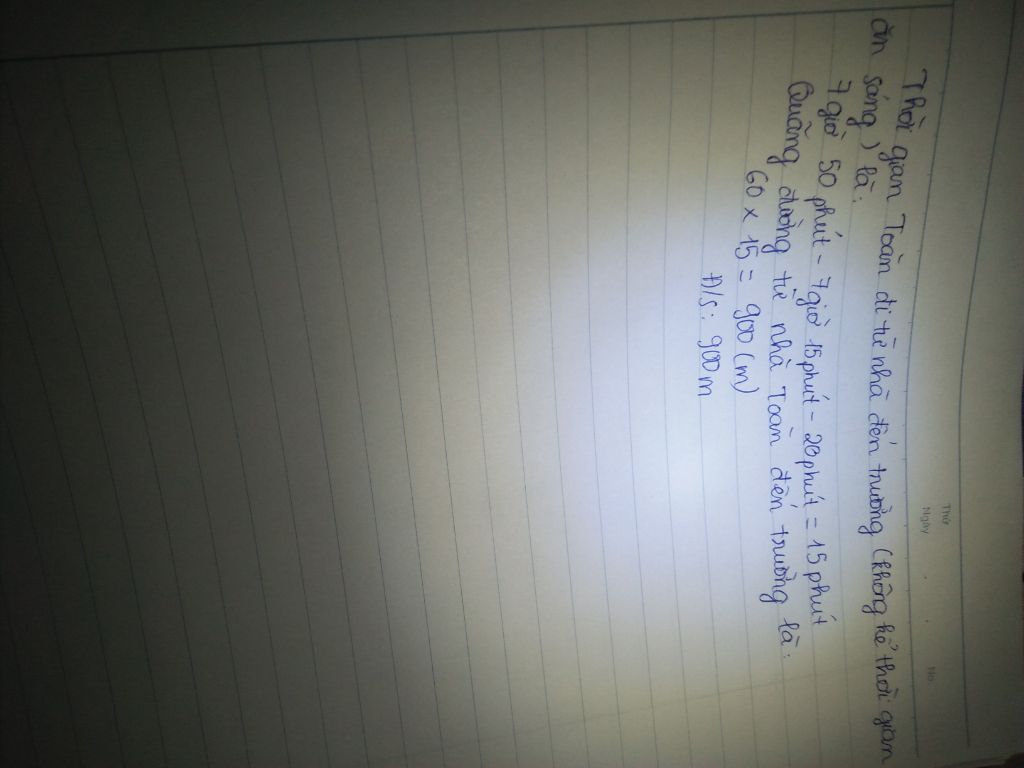 Thứ
Ngày
No.
Thời gian Toàn đi từ nhà đến trường (không kể thời gian
ăn sáng) là:
7 giờ 50 phút - 7 giờ 15 phút - 20 phút = 15 phút
Quãng đường từ nhà Toàn đến trường là:
60 x 15 = 900 (m)
Đ/s: 900 m